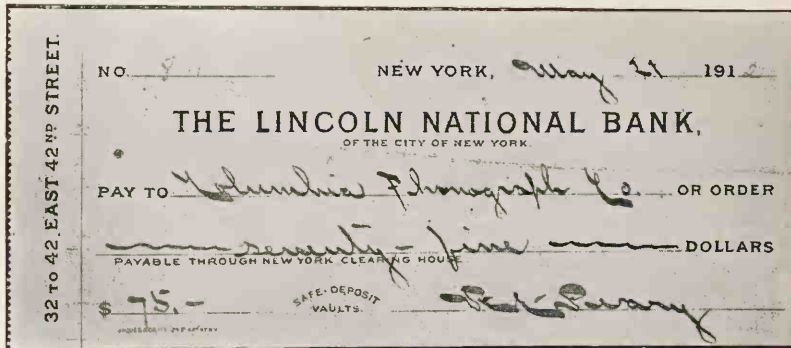 32 TO 42, EAST 42ND STREET.
NO. 8 NEW YORK, May 21 1912
THE LINCOLN NATIONAL BANK,
OF THE CITY OF NEW YORK.
PAY TO Columbia Phonograph Co. OR ORDER
seventy-five DOLLARS
PAYABLE THROUGH NEW YORK CLEARING HOUSE
$ 75.- SAFE-DEPOSIT
VAULTS.